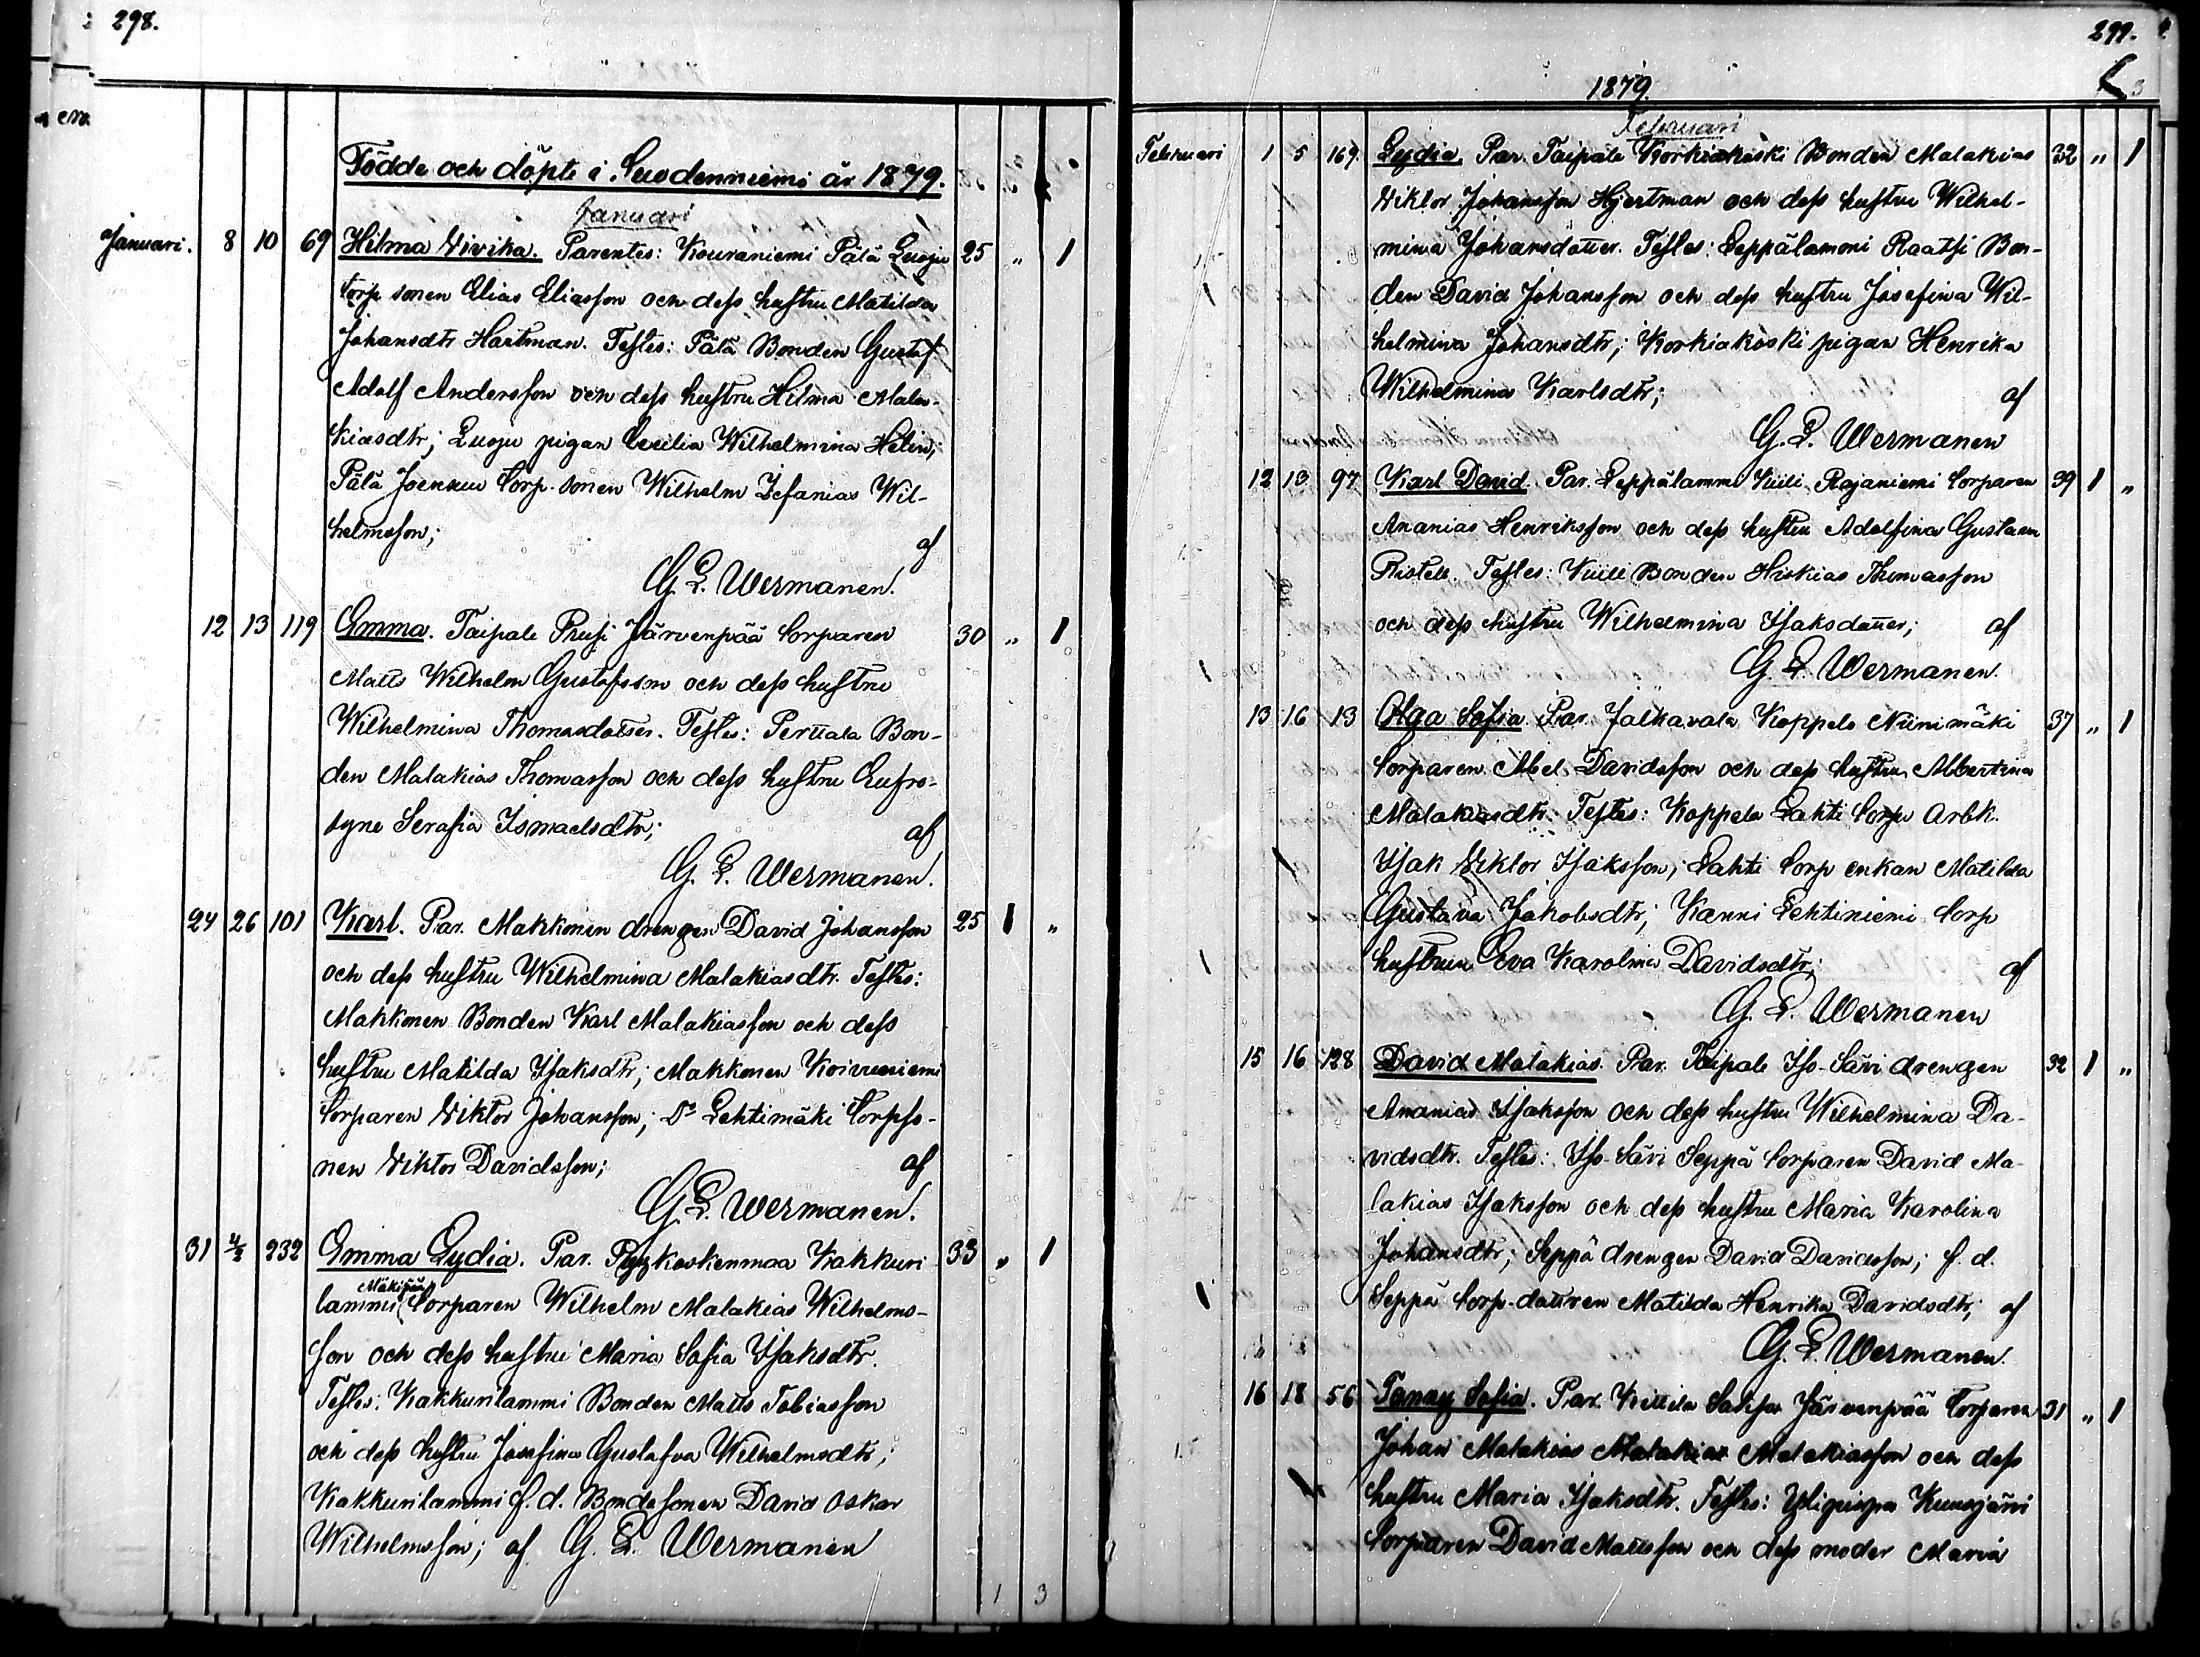 298.
Födde och döpte i Suodenniemi år 1879.
Januari
Januari. 8 10 69 Hilma Vivika. Parentes: Kouraniemi Pälä Luoju 25 " 1
torp sonen Elias Eliasson och dess hustru Matilda
Johansdtr Hartman. Testes: Pälä Bonden Gustaf
Adolf Andersson och dess hustru Hilma Mala-
kiasdtr; Luoju pigan Cecilia Wilhelmina Helin;
Pälä Joensuu torp. sonen Wilhelm Zefanias Wil-
helmsson; af
G. L. Wermanen.
12 13 119 Emma. Taipale Prusi Järvenpää torparen 30 " 1
Matts Wilhelm Gustafsson och dess hustru
Wilhelmina Thomasdotter. Testes: Perttala Bon-
den Malakias Thomasson och dess hustru Eufro-
syne Serafia Ismaelsdtr; af
G. L. Wermanen.
24 26 101 Karl. Par. Makkonen drengen David Johansson 25 1 "
och dess hustru Wilhelmina Malakiasdtr. Testes:
Makkonen Bonden Karl Malakiasson och dess
hustru Matilda Isaksdtr; Makkonen Koivuniemi
torparen Viktor Johansson; Do Lehtimäki torpso-
nen Viktor Davidsson; af
G. L. Wermanen.
31 4/2 232 Emma Lydia. Par. Pyykoskenmaa Kakkuri 33 " 1
lammi Mäkipää torparen Wilhelm Malakias Wilhelms-
son och dess hustru Maria Sofia Isaksdtr.
Testes: Kakkurilammi Bonden Matts Tobiasson
och dess hustru Josefina Gustafva Wilhelmsdtr;
Kakkurilammi f. d. Bondesonen David Oskar
Wilhelmsson; af G. L. Wermanen
1 3
299.
1879.
Februari
Februari 1 5 169 Lydia. Par. Taipale Korkiakoski Bonden Malakias 32 " 1
Viktor Johansson Hjertman och dess hustru Wilhel-
mina Johansdotter. Testes: Leppälammi Raatsi Bon-
den David Johansson och dess hustru Josefina Wil-
helmina Johansdtr; Korkiakoski pigan Henrika
Wilhelmina Karlsdtr; af
G. L. Wermanen
12 13 97 Karl David. Par. Leppälammi Kuili Rajaniemi torparen 39 1 "
Ananias Henriksson och dess hustru Adolfina Gustava
Ristell. Testes: Kuili Bonden Hiskias Thomasson
och dess hustru Wilhelmina Isaksdotter; af
G. L. Wermanen.
13 16 13 Olga Sofia Par. Jalkavala Koppelo Niinimäki 37 " 1
torparen Abel Davidsson och dess hustru Albertina
Malakiasdtr. Testes: Koppelo Lahti torp Arbk.
Isak Viktor Isaksson; Lahti torp enkan Matilda
Gustava Jakobsdtr; Kanni Lehtiniemi torp
hustrun Eva Karolina Davidsdtr; af
G. L. Wermanen
15 16 128 David Malakias. Par. Taipale Iso-Sävi drengen 32 1 "
Ananias Isaksson och dess hustru Wilhelmina Da-
vidsdtr. Testes: Iso-Sävi Seppä torparen David Ma-
lakias Isaksson och dess hustru Maria Karolina
Johansdtr; Seppä drengen David Davidsson; f. d.
Seppä torp-dottren Matilda Henrika Davidsdtr; af
G. L. Wermanen.
16 18 56 Fanny Sofia. Par. Kittilä Järvenpää torparen 31 " 1
Johan Malakias Malakias Malakiasson och dess
hustru Maria Isaksdtr. Testes: Kuusjärvi
torparen David Mattsson och dess moder Maria